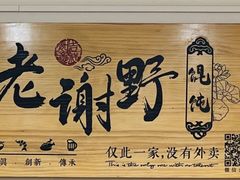 老谢野
馄饨
創新·傳承
仅此一家,没有外卖
This is the only one with no takeout